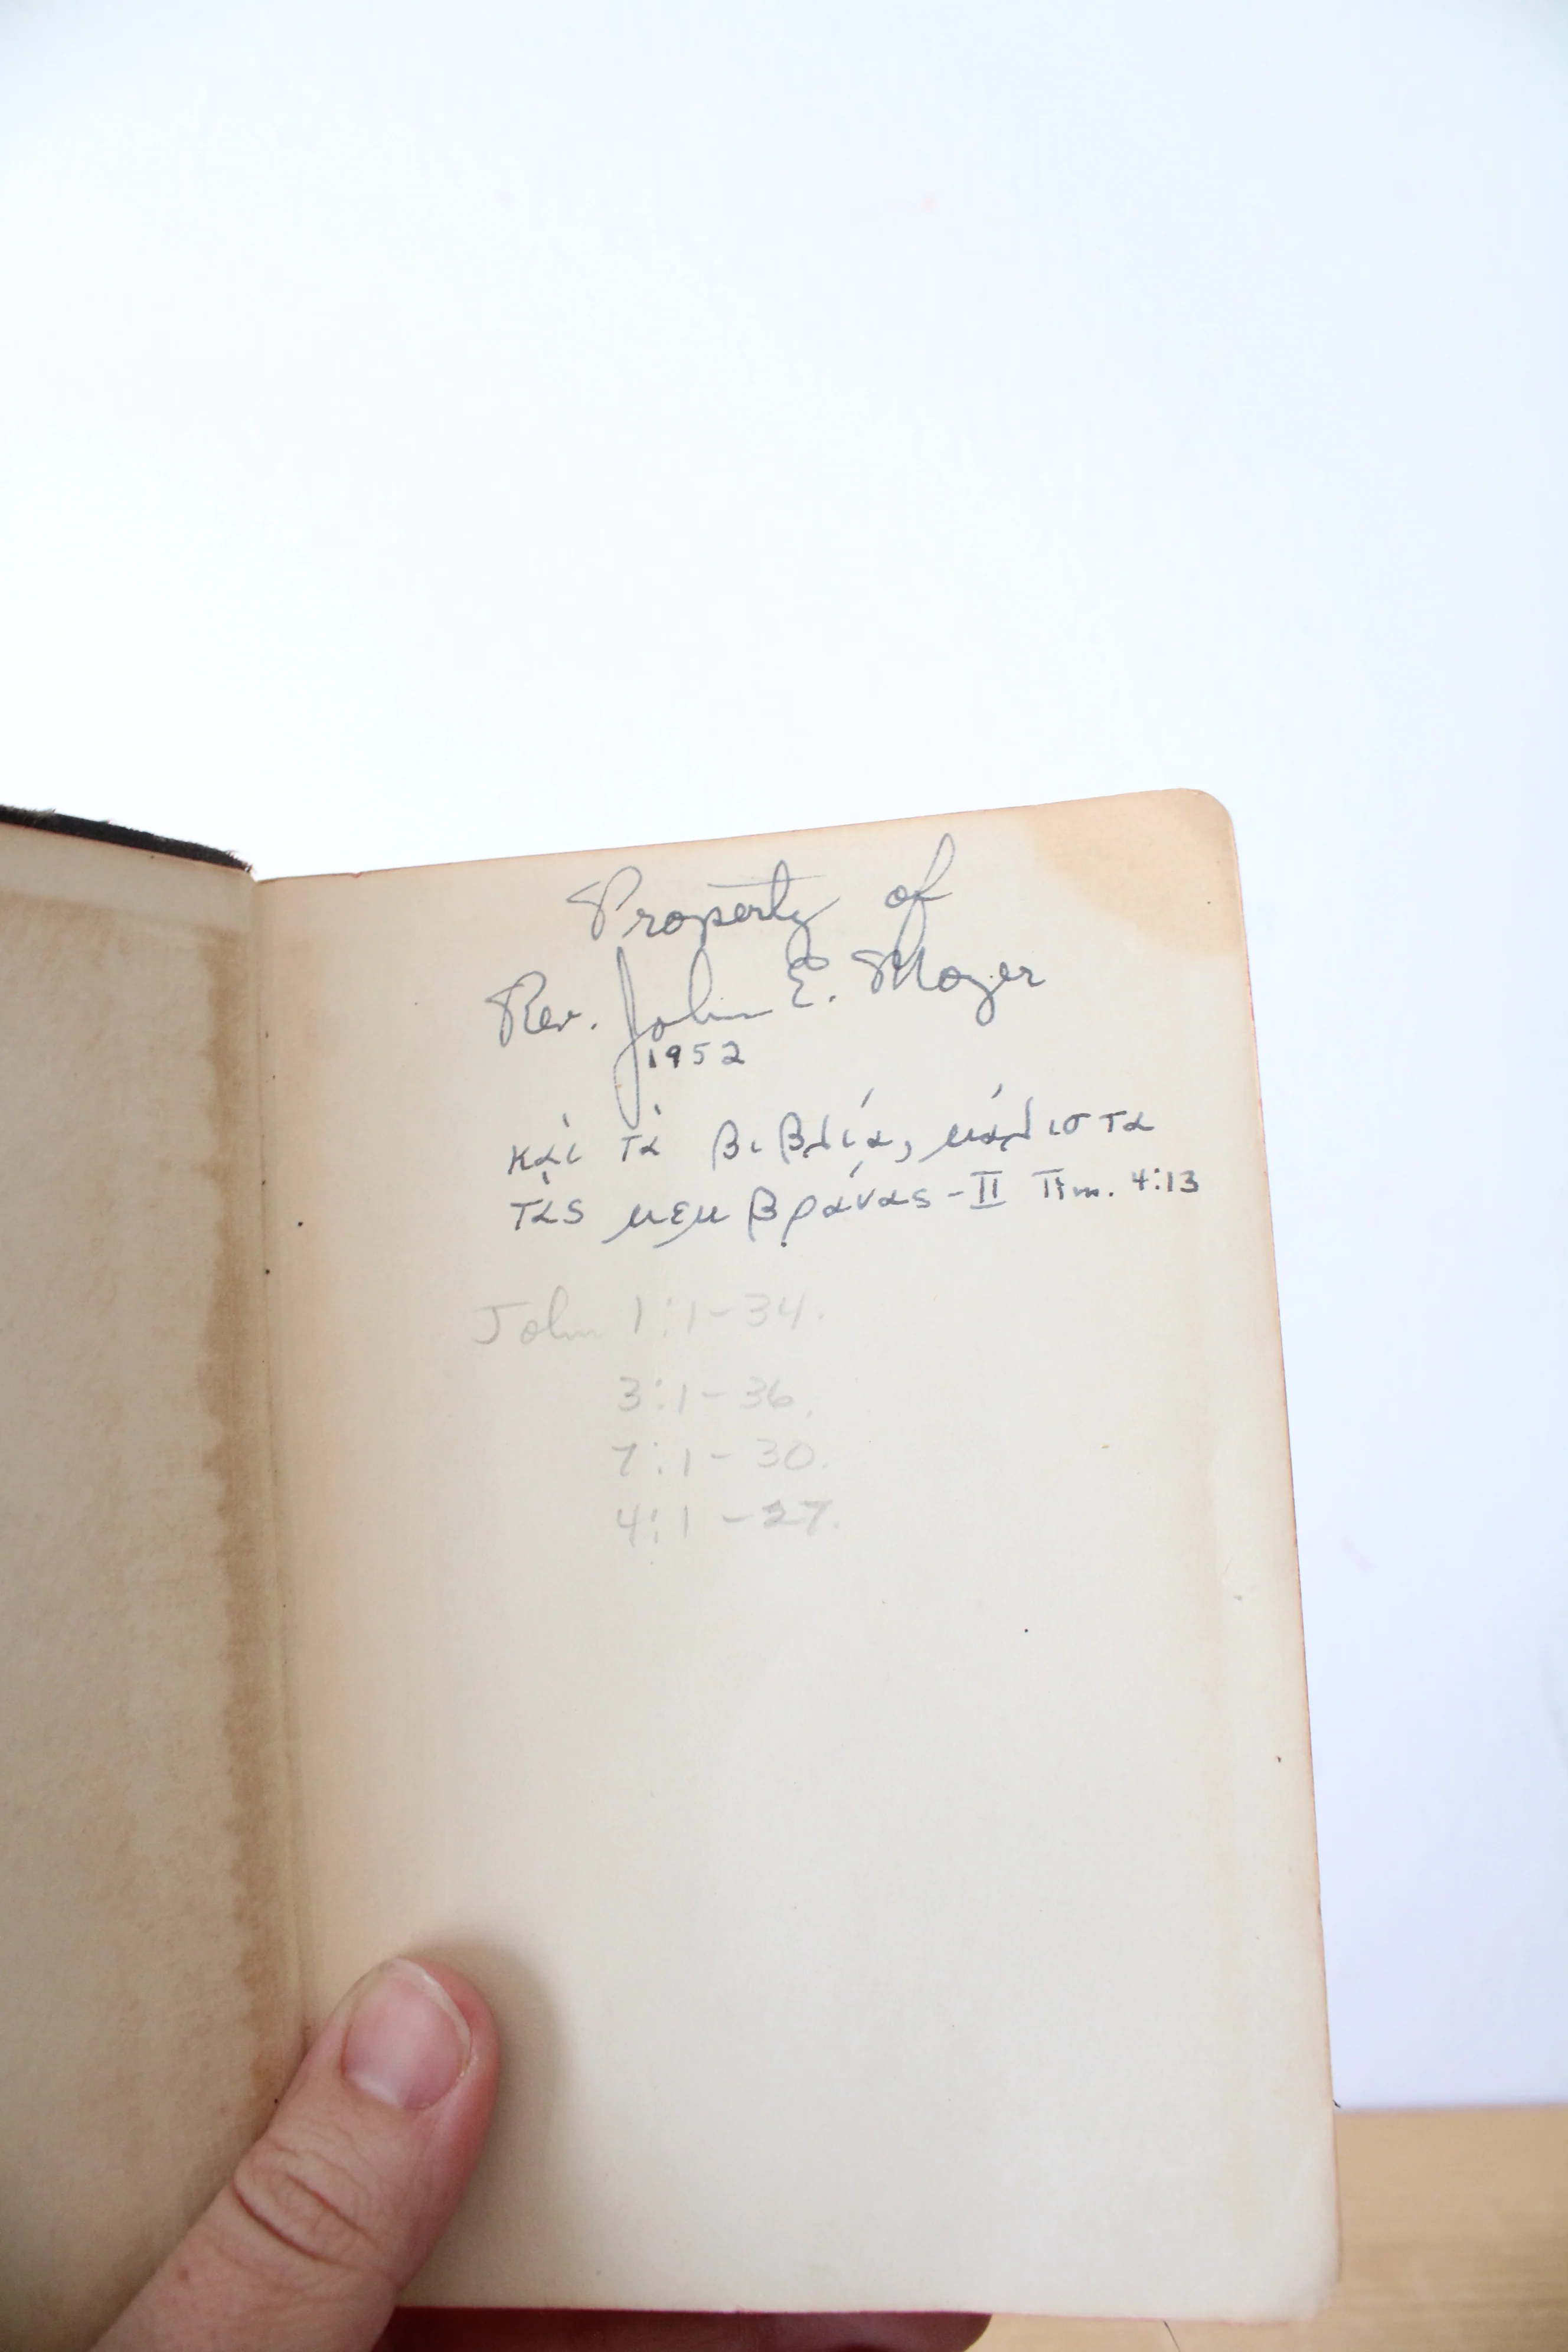 Property of
Rev. John E. Mozer
1952
καὶ τὰ βιβλία, μάλιστα
τὰς μεμβράνας - II Tim. 4:13
John 1:1-34.
3:1-36.
7:1-30.
4:1-27.